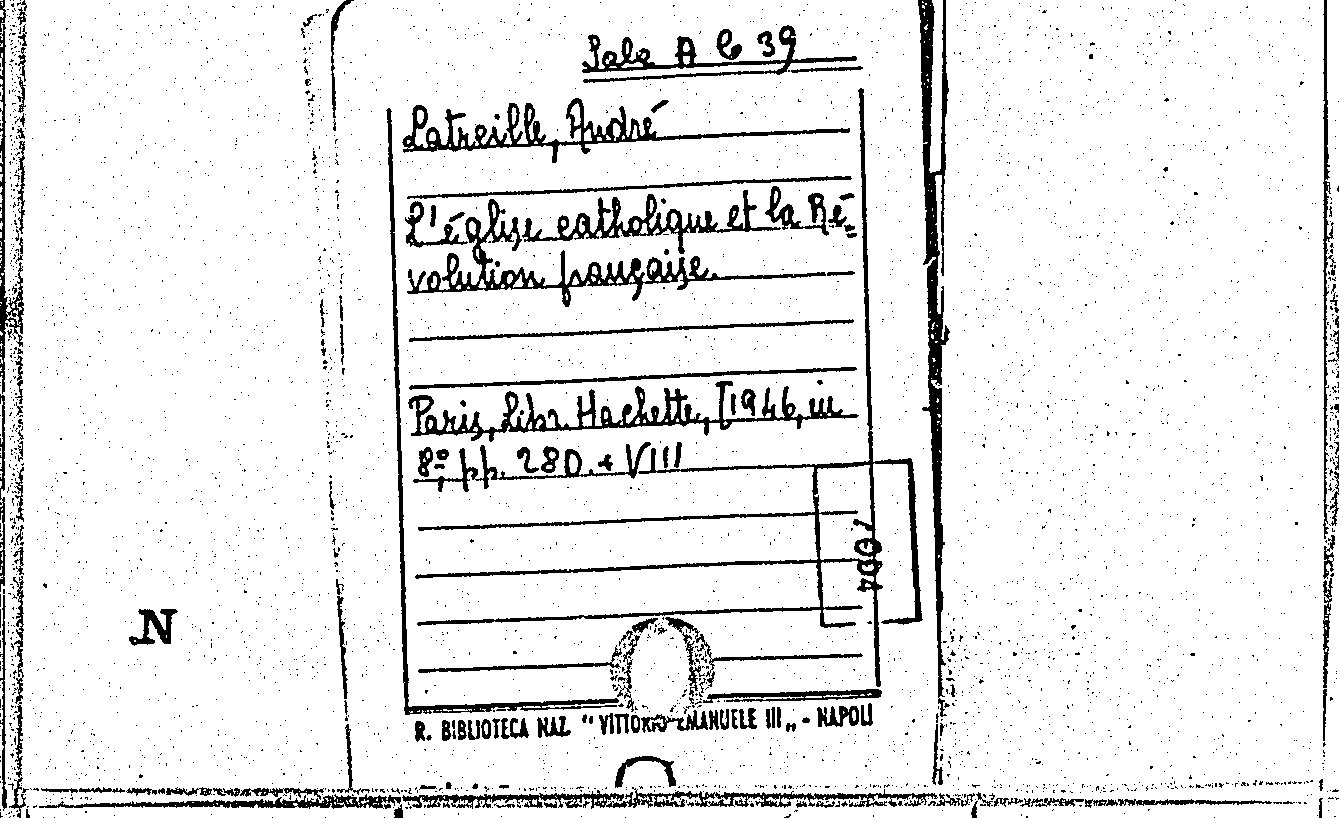 Sala A C 39
Latreille, André
L'église catholique et la Ré=
volution française.
Paris, Libr. Hachette, [1946, in
8º, pp. 280. + VIII
N
R. BIBLIOTECA NAZ. "VITTORIO EMANUELE III„ - NAPOLI